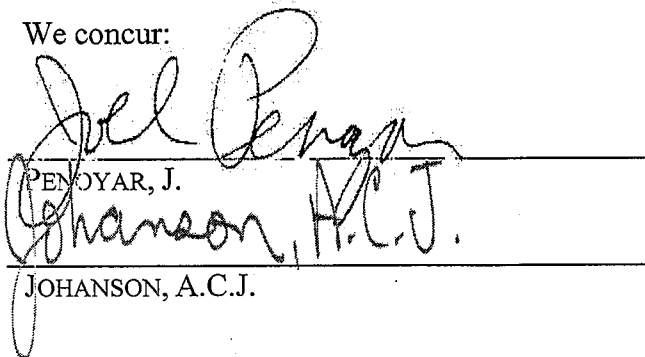 We concur:
Joel Penoyar
PENOYAR, J.
Johanson, A.C.J.
JOHANSON, A.C.J.